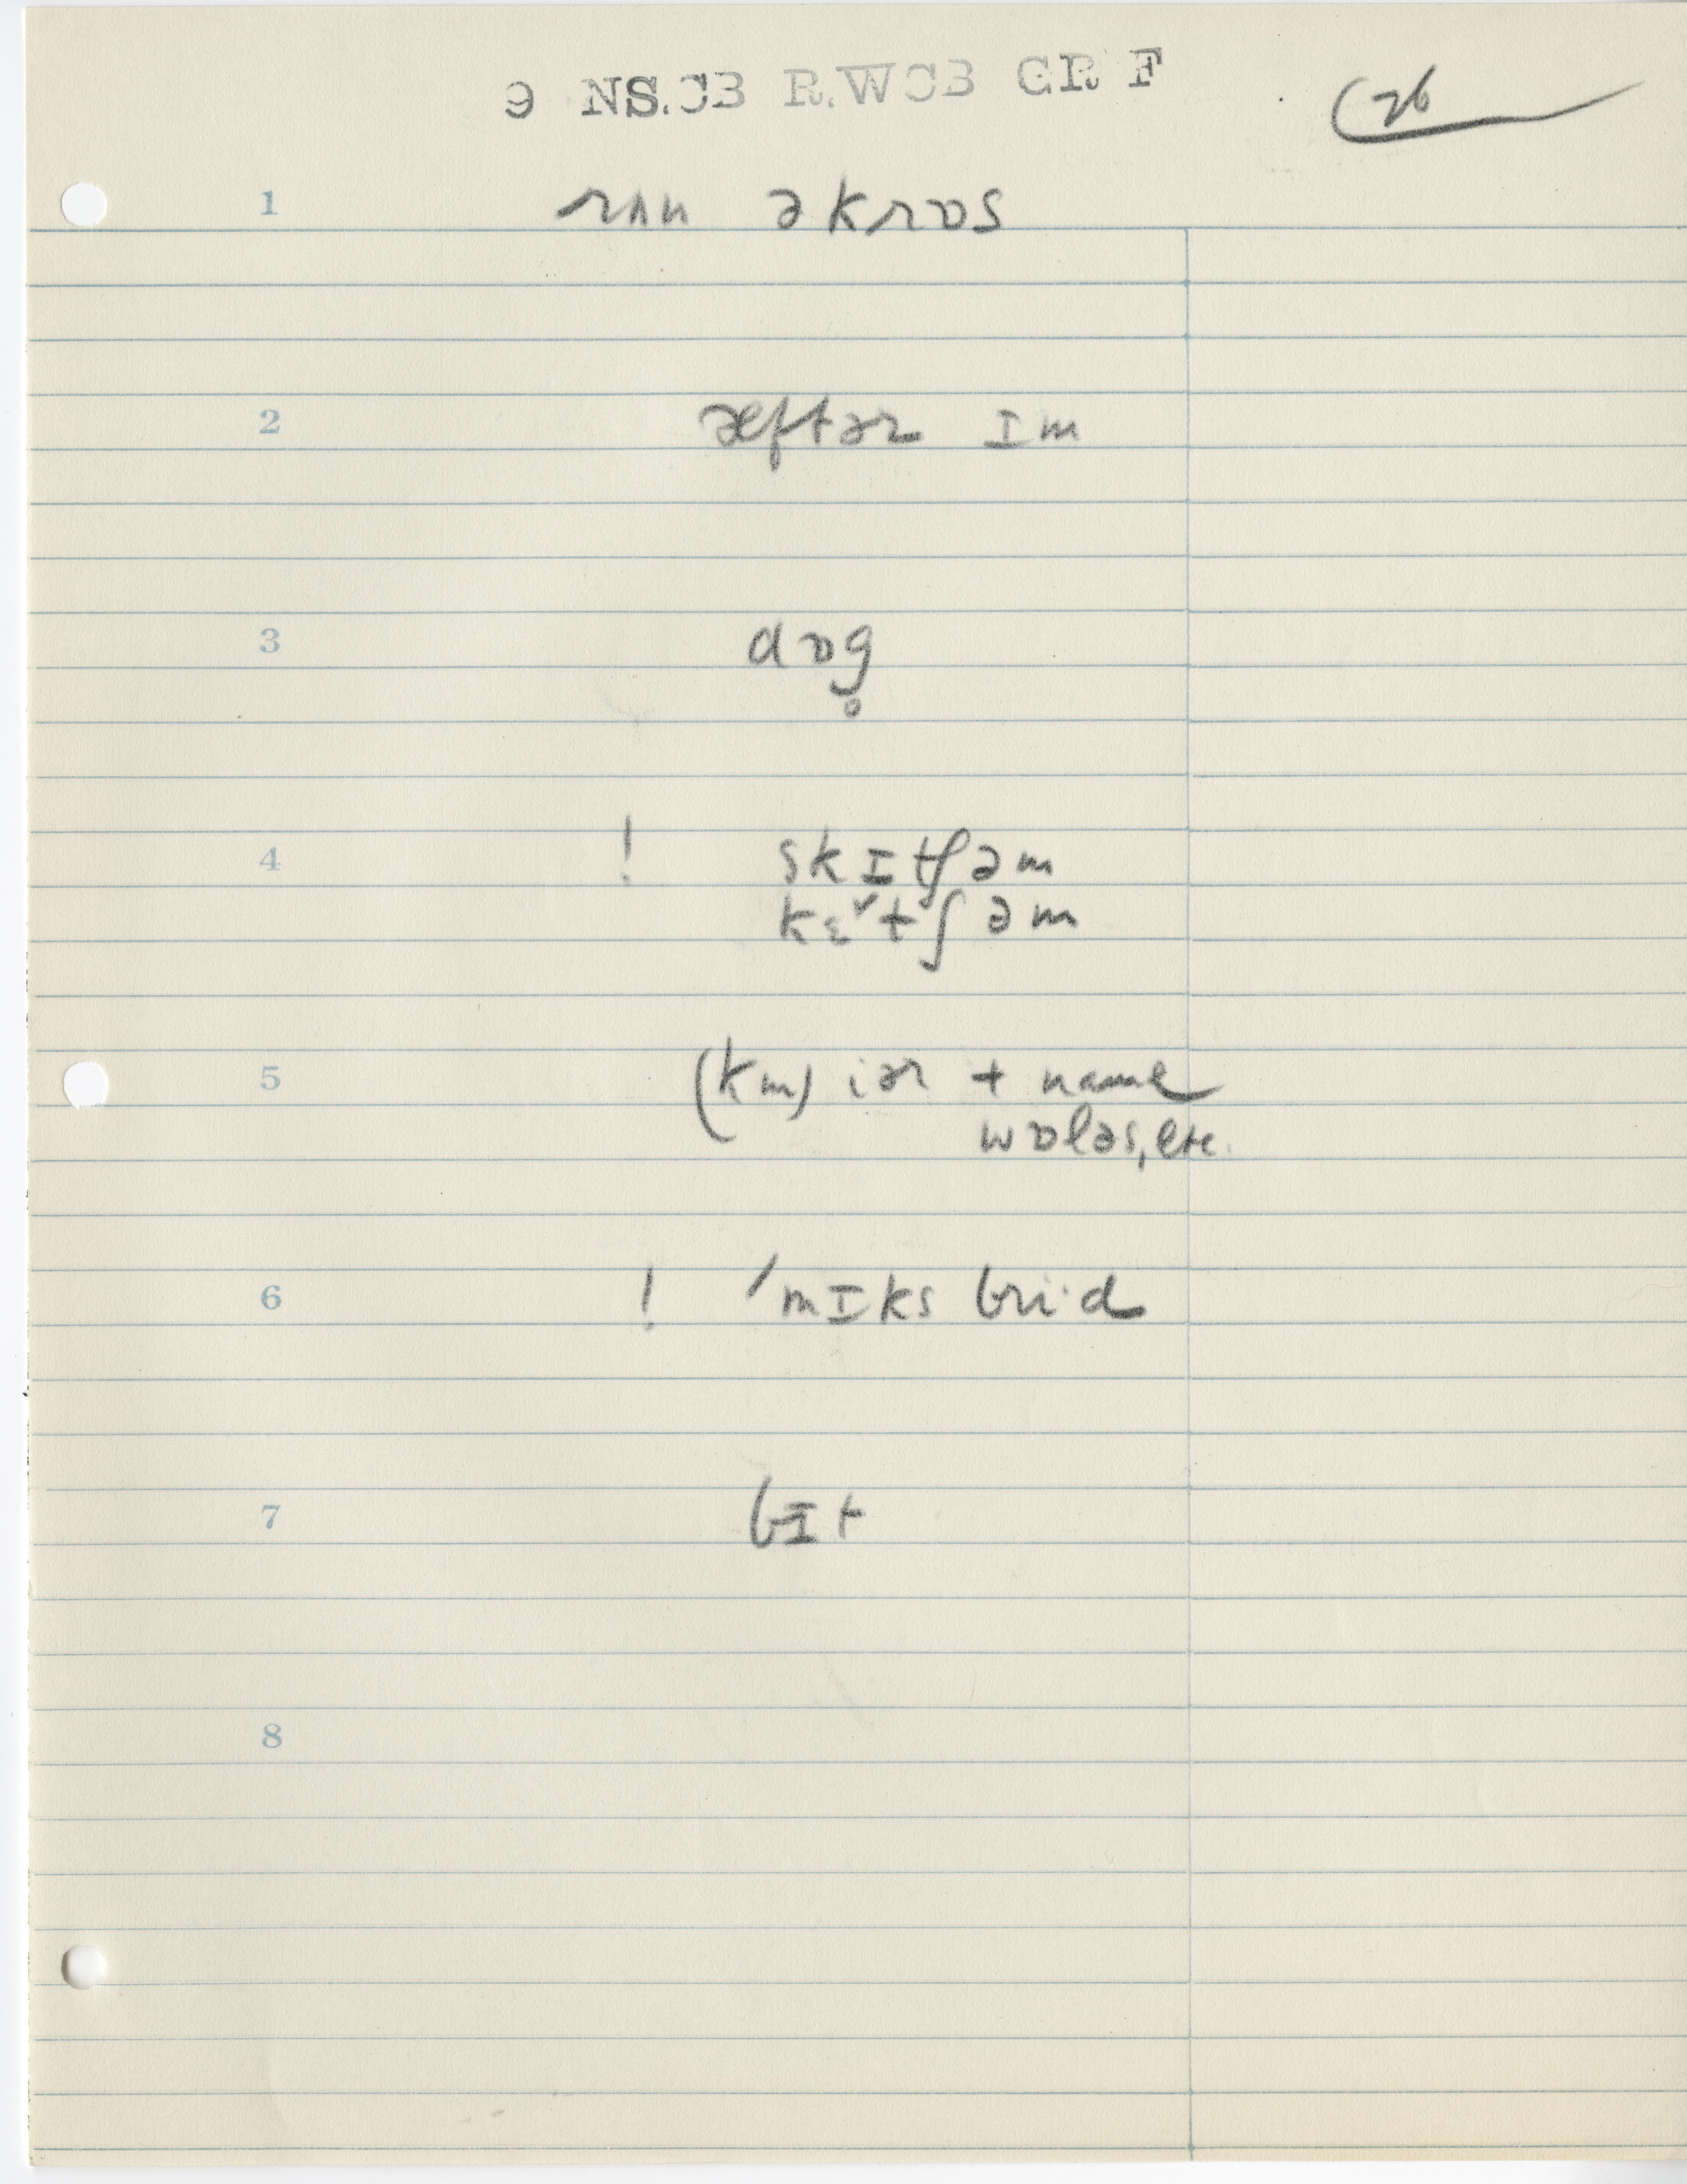 9 NS.CB R.WCB GR F
26
1 rʌn əkrɒs
2 æftər ɪm
3 dɒg̥
4 ! skɪtʃəm
kɛ˅tʃəm
5 (km) iər + name
wɒləs, etc.
6 ! ˈmɪks briˑd
7 bɪt
8